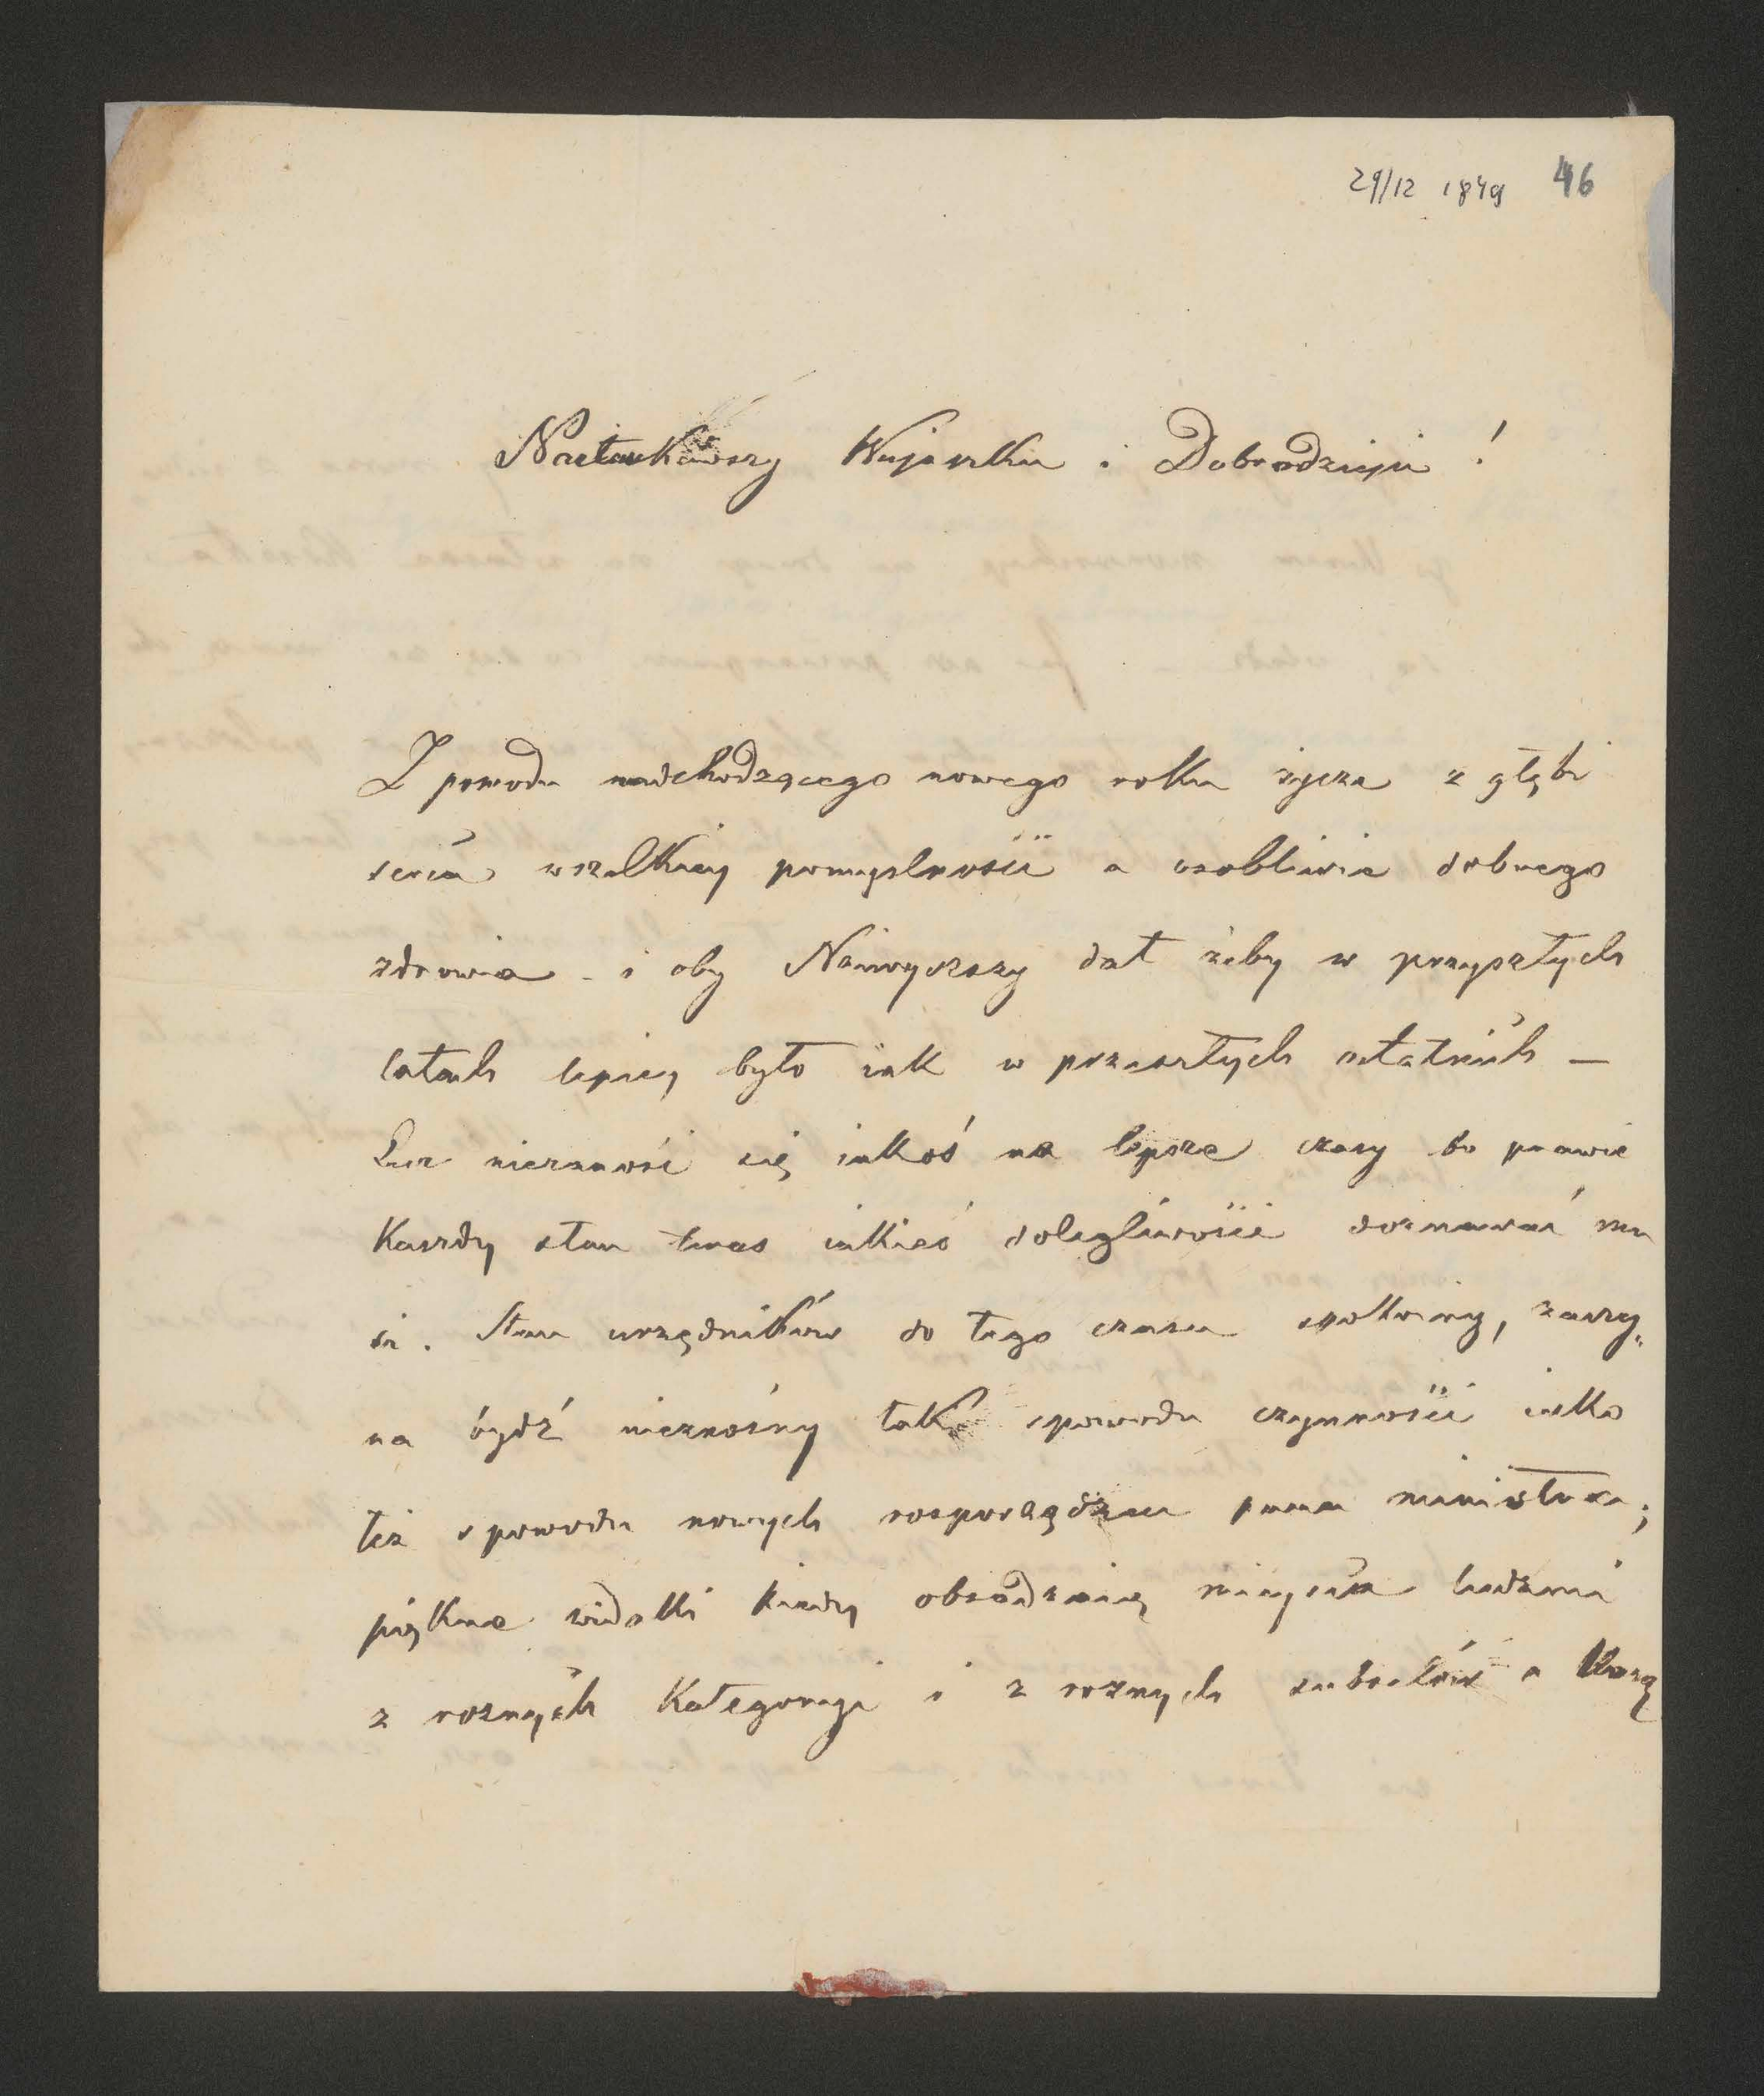 29/12 1849 46
Nałaskawszy Wujaszku i Dobrodzieju!
Z powodu nadchodzącego nowego roku życzę z głębi
serca wszelkiey pomyslności a osobliwie dobrego
zdrowia - i oby Naiwyższy dał żeby w przyszłych
latach lepiey było iak w przeszłych ostatnich —
Lecz niezanosi się iakoś na lepsze czasy bo prawie
Każdy stan teras iakieś dolegliwości doznawać mu
si. Stan urzędników do tego czasu spokoiny, zaczy„
na bydź nieznośny tak spowodu czynności iako
też spowodu nowych rosporządzeń pana ministra;
piękne widoki kiedy obsadzaią mieysca ludzmi
z roznych Kategoryi i z roznych a Każą